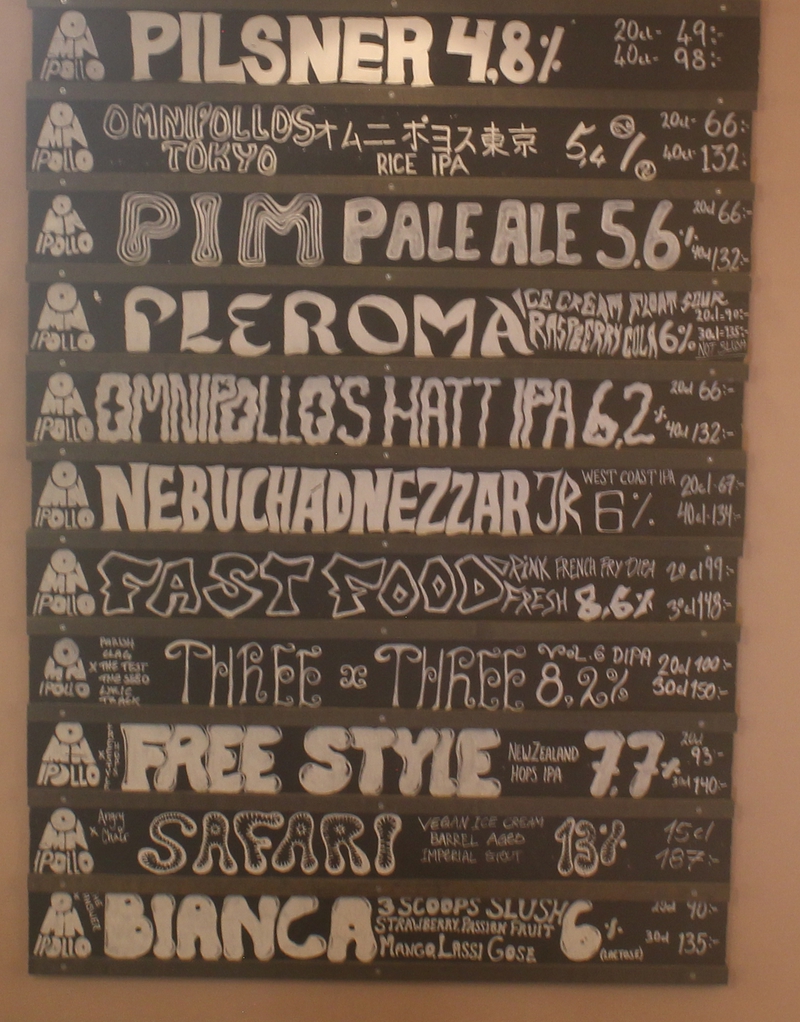 OMNIPOLLO PILSNER 4,8% 20cl- 49:-
40cl- 98:-
OMNIPOLLO OMNIPOLLOS TOKYO オムニポヨス東京 RICE IPA 5,4% 20cl- 66:-
40cl- 132:-
OMNIPOLLO PIM PALE ALE 5.6% 20cl 66:-
40cl 132:-
OMNIPOLLO PLEROMA ICE CREAM FLOAT SOUR
RASPBERRY COLA 6% 20cl=90:-
30cl=135:-
NOT SLUSH
OMNIPOLLO OMNIPOLLO'S HATT IPA 6,2% 20cl 66:-
40cl 132:-
OMNIPOLLO NEBUCHADNEZZAR JR WEST COAST IPA 6% 20cl-67:-
40cl-134:-
OMNIPOLLO FAST FOOD DRINK FRENCH FRY DIPA
FRESH 8,6% 20cl 99:-
30cl 148:-
OMNIPOLLO X THE TEST
THREE x THREE VOL.6 DIPA 8,2% 20cl 100:-
30cl 150:-
OMNIPOLLO X FREE STYLE NEW ZEALAND
HOPS IPA 7,7% 20cl 93:-
30cl 140:-
OMNIPOLLO X Angry Chair SAFARI VEGAN ICE CREAM
BARREL AGED
IMPERIAL STOUT 13% 15cl
187:-
OMNIPOLLO BIANCA 3 SCOOPS SLUSH
STRAWBERRY, PASSION FRUIT
MANGO LASSI GOSE 6% (LACTOSE) 20cl 90:-
30cl 135:-